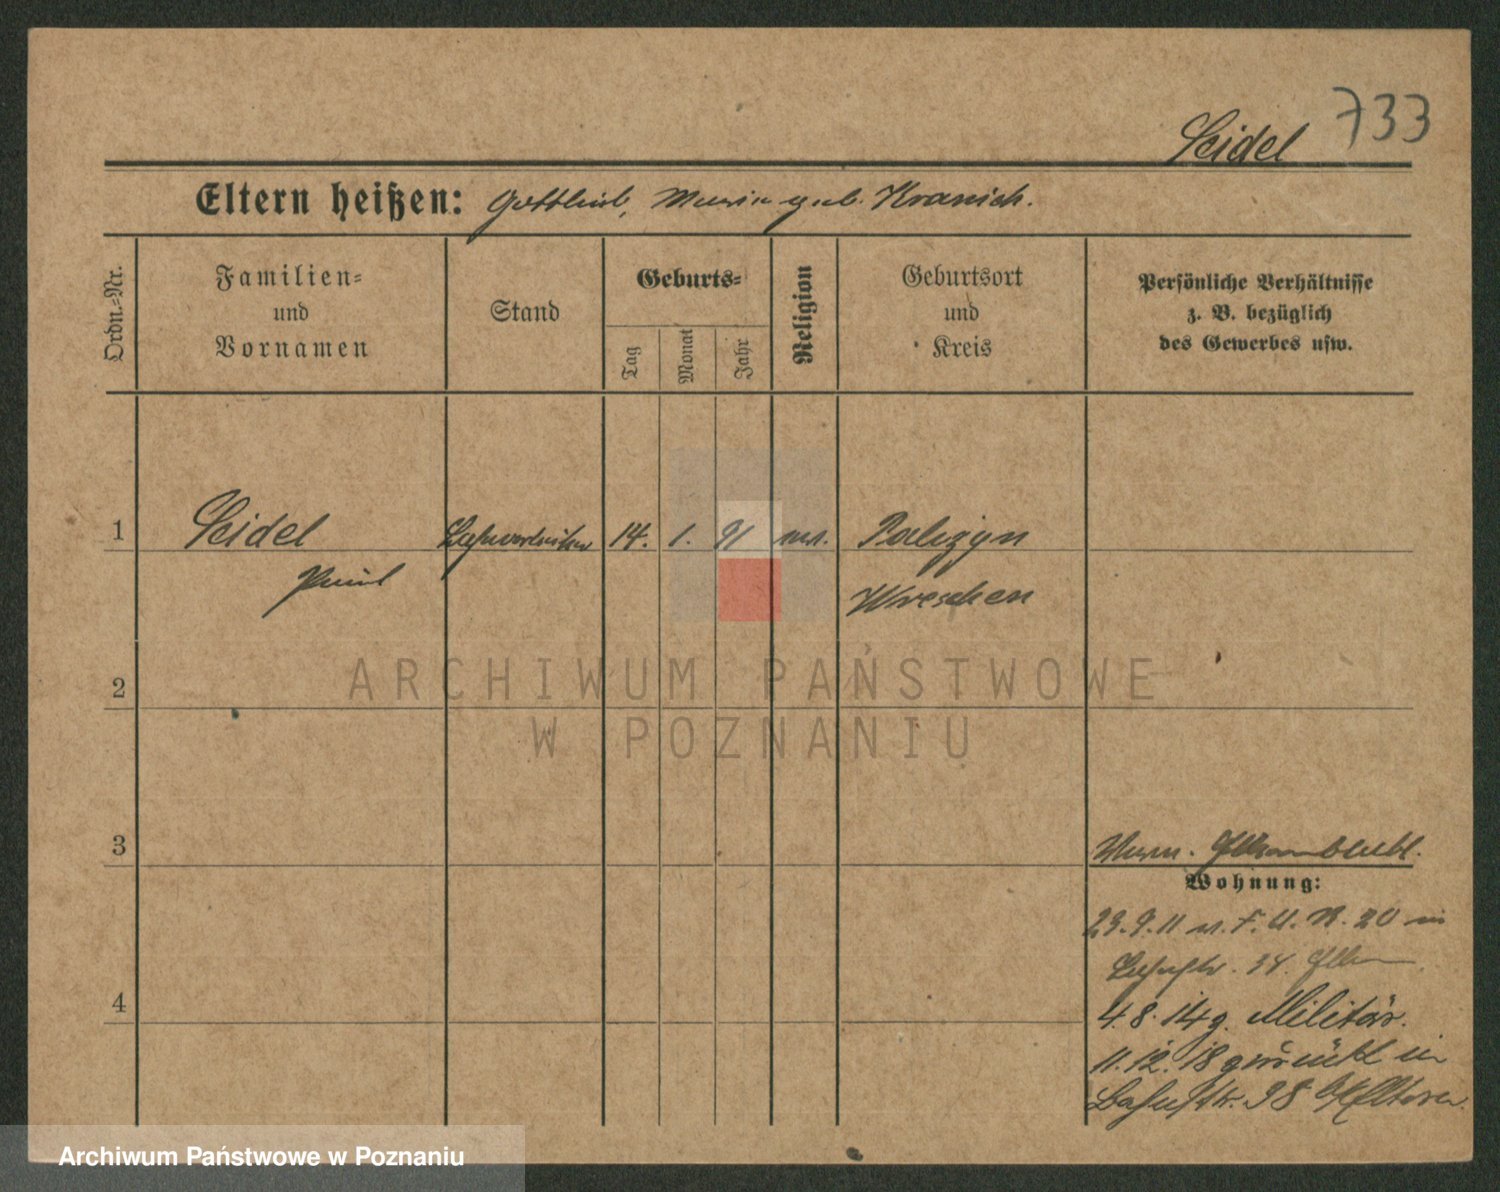 733
Seidel
Eltern heißen: Gottlieb, Maria geb. Kranich.
Ordn.-Nr.
Familien- und Vornamen
Stand
Geburts-
Tag
Monat
Jahr
Religion
Geburtsort und Kreis
Persönliche Verhältnisse z. B. bezüglich des Gewerbes usw.
1 Seidel 14. 1. 91 ev.
Paul Wreschen
2
3
Wohnung:
23.9.11 v. F. U. R. 20 in
34. Eltern
4
4.8.14 g. Militär.
11.12.18 zurück in
Bahnstr. 98 b/Eltern.
ARCHIWUM PAŃSTWOWE
W POZNANIU
Archiwum Państwowe w Poznaniu